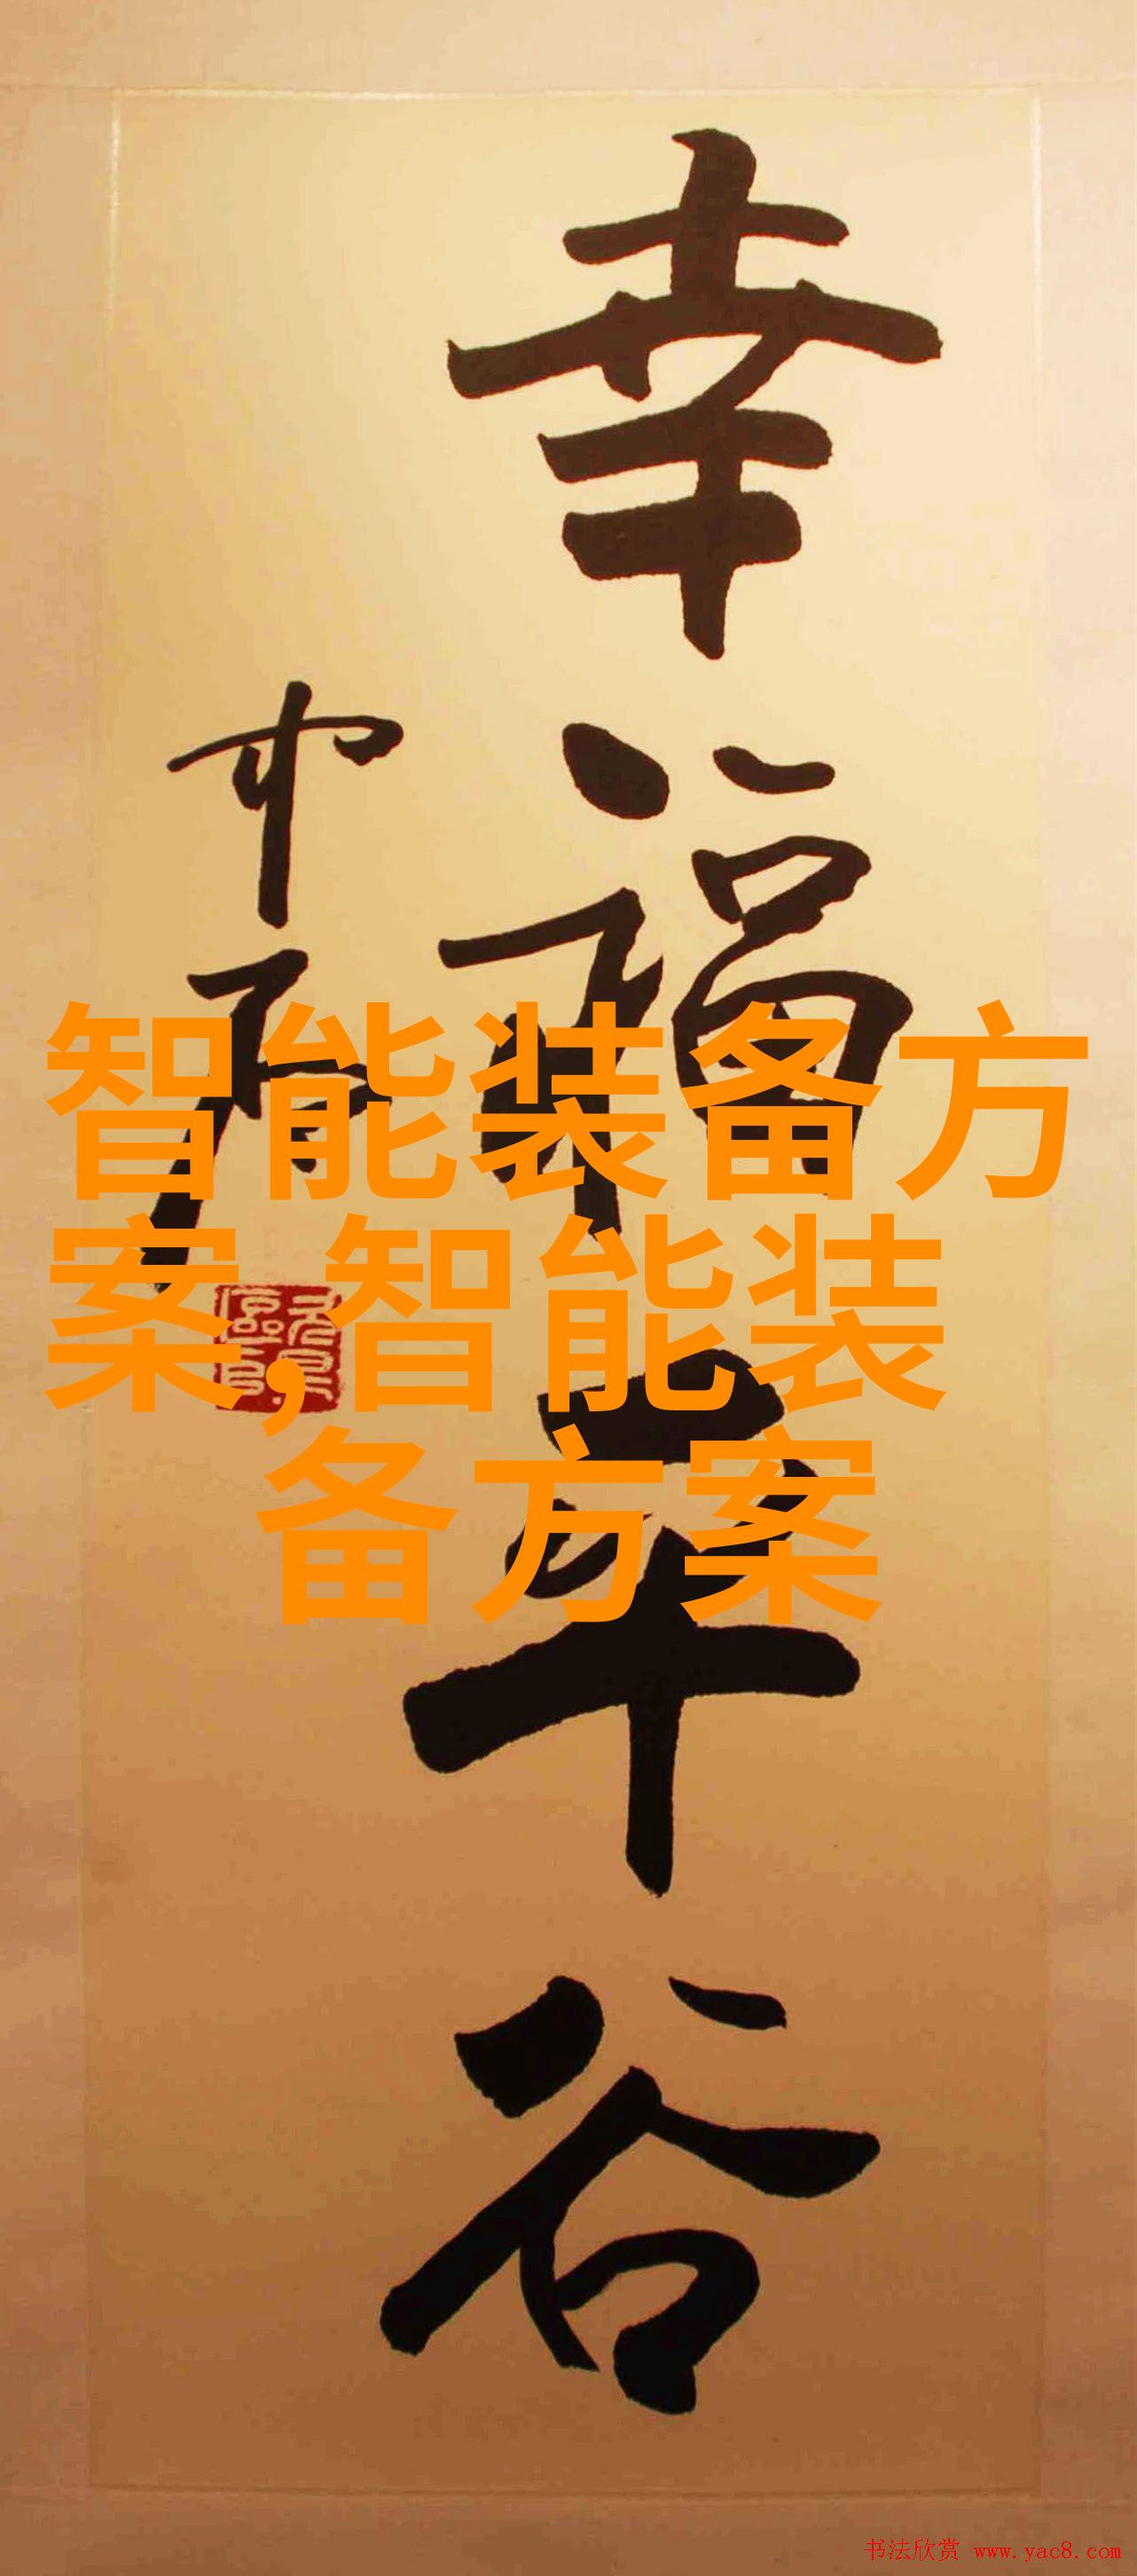 幸福草谷
智能装备方
案,智能装
备方案
书法欣赏 www.yac8.com